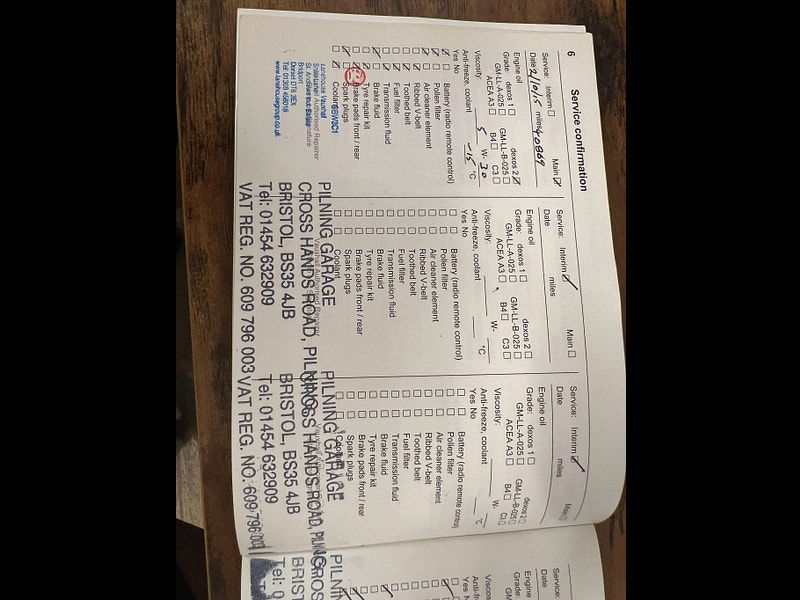 6
Service confirmation
Service: Interim Main
Date 2/10/15 miles 40869
Engine oil dexos 2
Grade: dexos 1 GM-LL-B-025
GM-LL-A-025 B4 C3
ACEA A3
Viscosity: 5 W- 30
Anti-freeze, coolant -15 °C
Yes No
Battery (radio remote control)
Pollen filter
Air cleaner element
Ribbed V-belt
Toothed belt
Fuel filter
Transmission fluid
Brake fluid
Tyre repair kit
Brake pads front / rear
Spark plugs
Coolant
Bridport
Dorset DT6 3EX
Tel: 01308
www.lanehousegroup.co.uk
Service: Interim Main
Date miles
Engine oil dexos 2
Grade: dexos 1 GM-LL-B-025
GM-LL-A-025 B4 C3
ACEA A3
Viscosity: W-
Anti-freeze, coolant °C
Yes No
Battery (radio remote control)
Pollen filter
Air cleaner element
Ribbed V-belt
Toothed belt
Fuel filter
Transmission fluid
Brake fluid
Tyre repair kit
Brake pads front / rear
Spark plugs
Coolant
PILNING GARAGE
CROSS HANDS ROAD, PILNING
BRISTOL, BS35 4JB
Tel: 01454 632909
VAT REG. NO. 609 796 003
Service: Interim Main
Date miles
Engine oil dexos 2
Grade: dexos 1 GM-LL-B-025
GM-LL-A-025 B4 C3
ACEA A3
Viscosity: W-
Anti-freeze, coolant °C
Yes No
Battery (radio remote control)
Pollen filter
Air cleaner element
Ribbed V-belt
Toothed belt
Fuel filter
Transmission fluid
Brake fluid
Tyre repair kit
Brake pads front / rear
Spark plugs
Coolant
PILNING GARAGE
CROSS HANDS ROAD, PILNING
BRISTOL, BS35 4JB
Tel: 01454 632909
VAT REG. NO. 609 796 003
Service:
Date
Engine
Grade:
Viscos
Anti-f
Yes
PILNIN
CROS
BRIST
Tel: 0